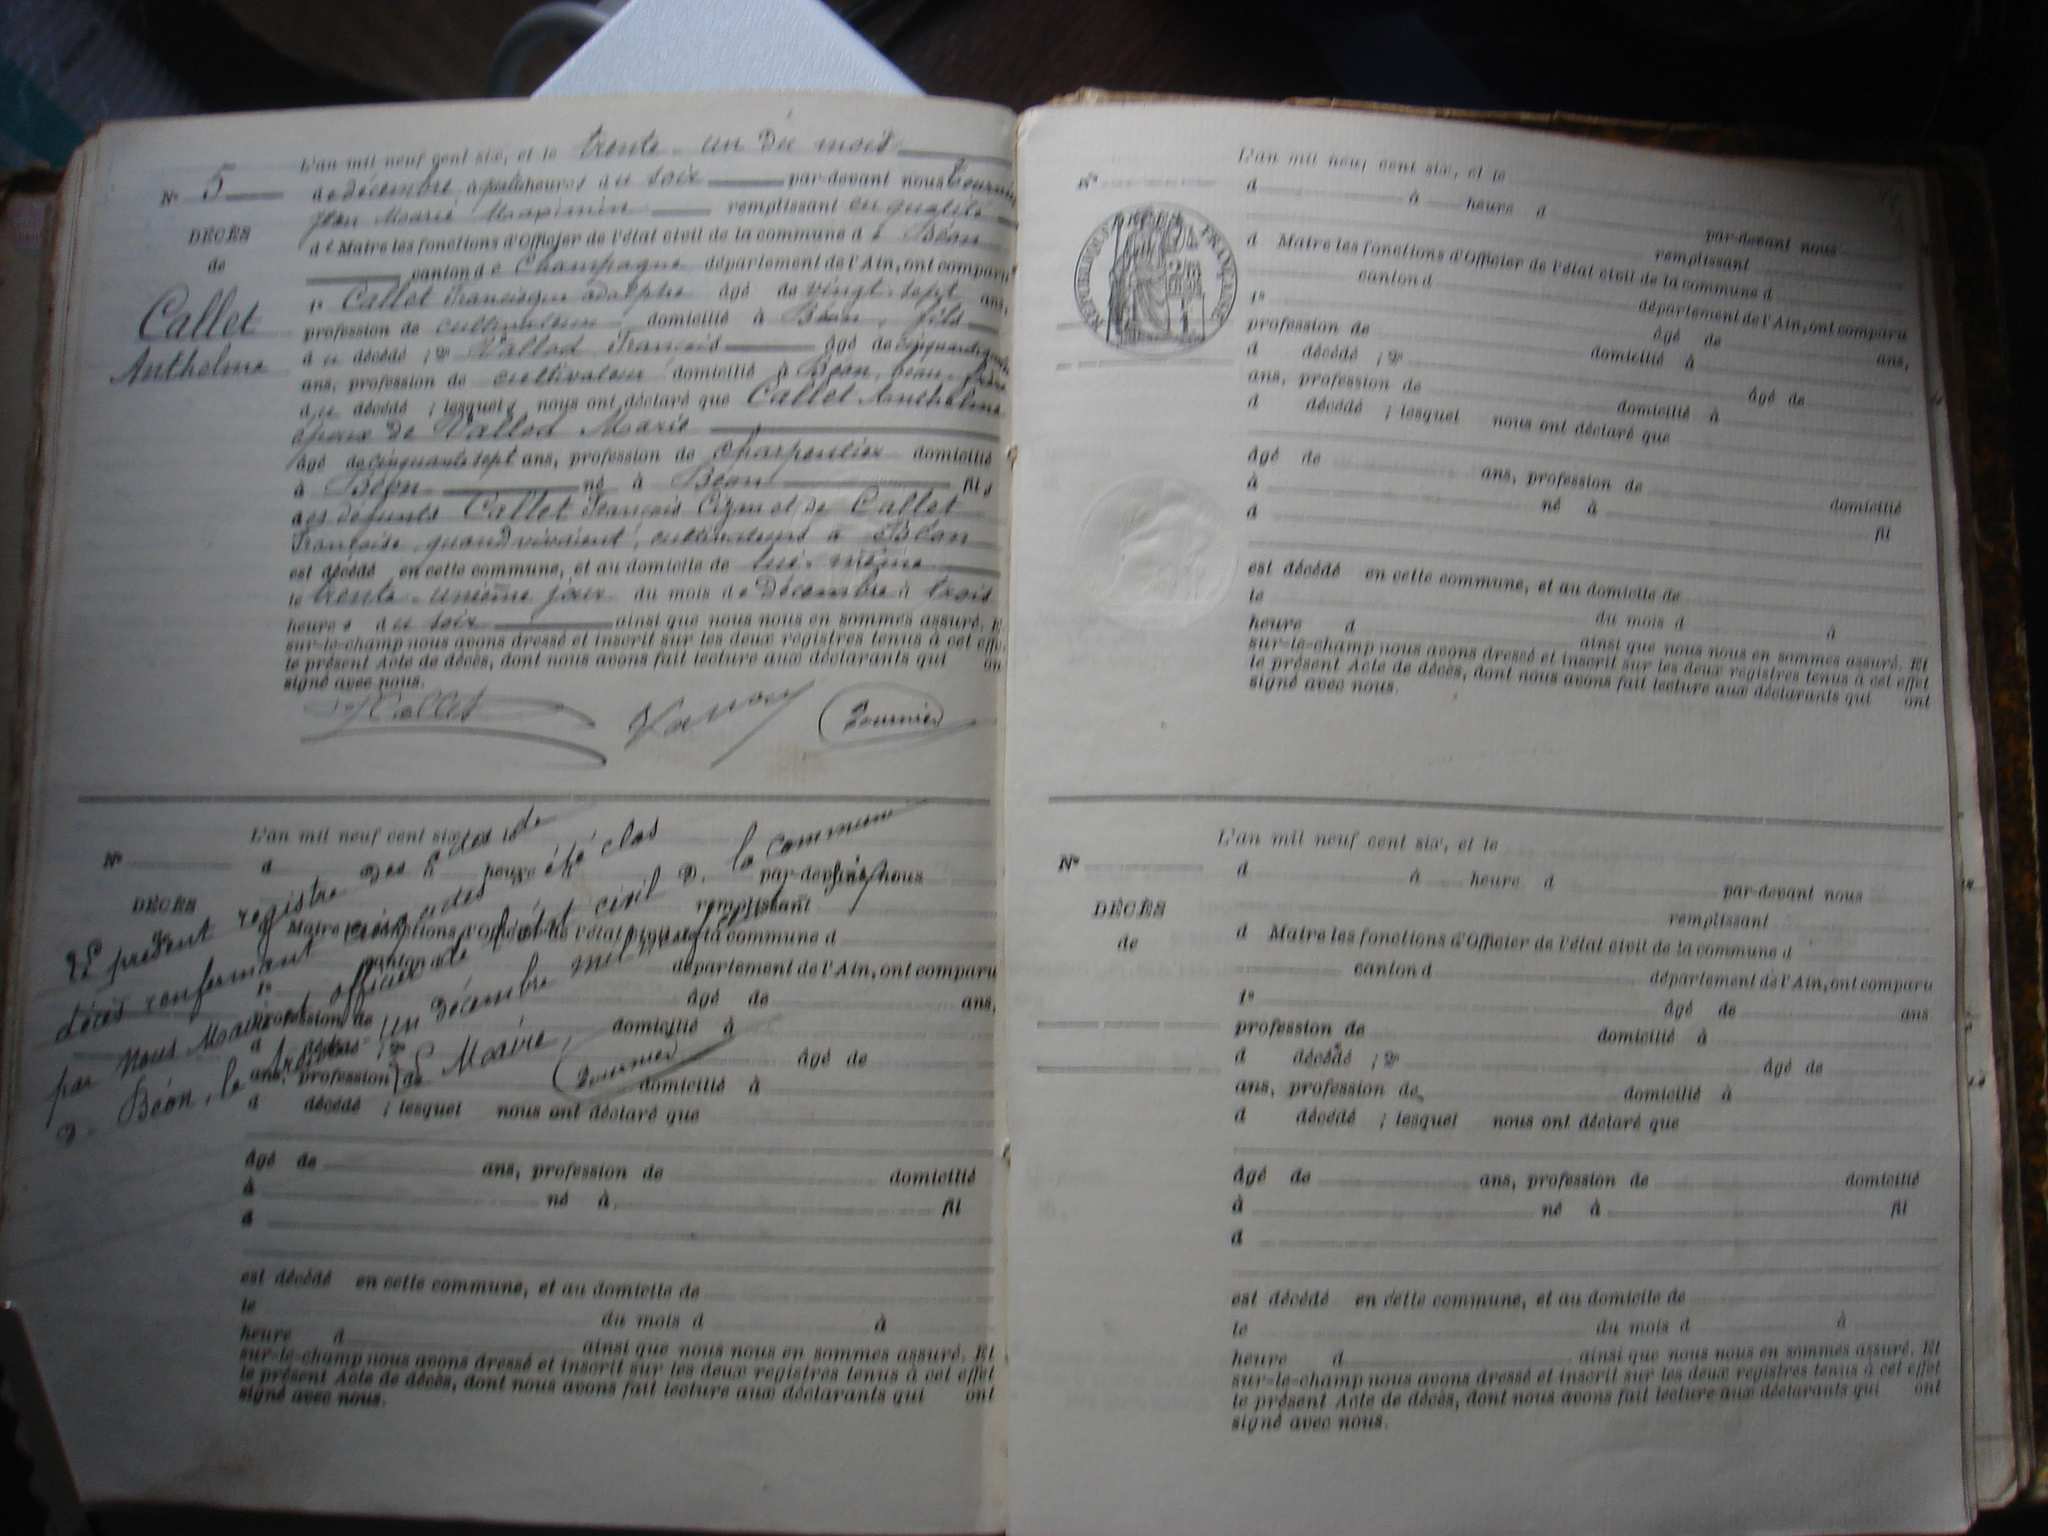 L'an mil neuf cent six, et le trente-un du mois
N° 5 de décembre à huit heures du soir par-devant nous Tournier
Jean Marie Maximin remplissant en qualité
DÉCÈS
de Maire les fonctions d'Officier de l'état civil de la commune de Béon
de
canton de Champagne département de l'Ain, ont comparu
1° Callet Francisque Adolphe âgé de vingt-sept ans,
Callet
profession de cultivateur domicilié à Béon, fils
Anthelme
du décédé ; 2° Vallod François âgé de cinquante
ans, profession de cultivateur domicilié à Béon, beau-frère
du décédé ; lesquels nous ont déclaré que Callet Anthelme
époux de Vallod Marie
âgé de cinquante sept ans, profession de charpentier domicilié
à Béon né à Béon fils
des défunts Callet François et de Callet
Françoise quand vivaient, cultivateurs à Béon
est décédé en cette commune, et au domicile de lui-même
le trente-unième jour du mois de Décembre à trois
heures du soir ainsi que nous nous en sommes assuré. E
sur-le-champ nous avons dressé et inscrit sur les deux registres tenus à cet effe
le présent Acte de décès, dont nous avons fait lecture aux déclarants qui on
signé avec nous.
Callet Vallod Tournier
L'an mil neuf cent six, et le
N° d heure par-devant nous
DÉCÈS remplissant
d Maire les fonctions d'Officier de l'état civil de la commune d
canton d département de l'Ain, ont comparu
1° âgé de ans,
profession de domicilié à
d décédé ; 2° âgé de
ans, profession de domicilié à
d décédé ; lesquel nous ont déclaré que
Le présent registre des actes de
décès renfermant cinq actes a été clos
par nous Maire et officier de l'état civil de la commune
de Béon, le trente-un décembre mil neuf cent six
Le Maire,
Tournier
âgé de ans, profession de domicilié
à né à fil
d
est décédé en cette commune, et au domicile de
le du mois d à
heure d ainsi que nous nous en sommes assuré. Et
sur-le-champ nous avons dressé et inscrit sur les deux registres tenus à cet effet
le présent Acte de décès, dont nous avons fait lecture aux déclarants qui ont
signé avec nous.
L'an mil neuf cent six, et le
N°
d à heure d par-devant nous
remplissant
RÉPUBLIQUE FRANÇAISE
d Maire les fonctions d'Officier de l'état civil de la commune d
canton d département de l'Ain, ont comparu
1° âgé de ans,
profession de domicilié à
d décédé ; 2° âgé de
ans, profession de domicilié à
d décédé ; lesquel nous ont déclaré que
âgé de ans, profession de domicilié
à né à fil
d
est décédé en cette commune, et au domicile de
le du mois d à
heure d ainsi que nous nous en sommes assuré. Et
sur-le-champ nous avons dressé et inscrit sur les deux registres tenus à cet effet
le présent Acte de décès, dont nous avons fait lecture aux déclarants qui ont
signé avec nous.
L'an mil neuf cent six, et le
N° d à heure d par-devant nous
DÉCÈS remplissant
de d Maire les fonctions d'Officier de l'état civil de la commune d
canton d département de l'Ain, ont comparu
1° âgé de ans
profession de domicilié à
d décédé ; 2° âgé de
ans, profession de domicilié à
d décédé ; lesquel nous ont déclaré que
âgé de ans, profession de domicilié
à né à fil
d
est décédé en cette commune, et au domicile de
le du mois d à
heure d ainsi que nous nous en sommes assuré. Et
sur-le-champ nous avons dressé et inscrit sur les deux registres tenus à cet effet
le présent Acte de décès, dont nous avons fait lecture aux déclarants qui ont
signé avec nous.